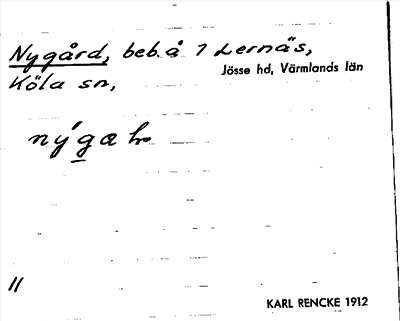 Nygård, beb. å 1 Lernäs,
Köla sn, Jösse hd, Värmlands län
nýgaƚ
11
KARL RENCKE 1912